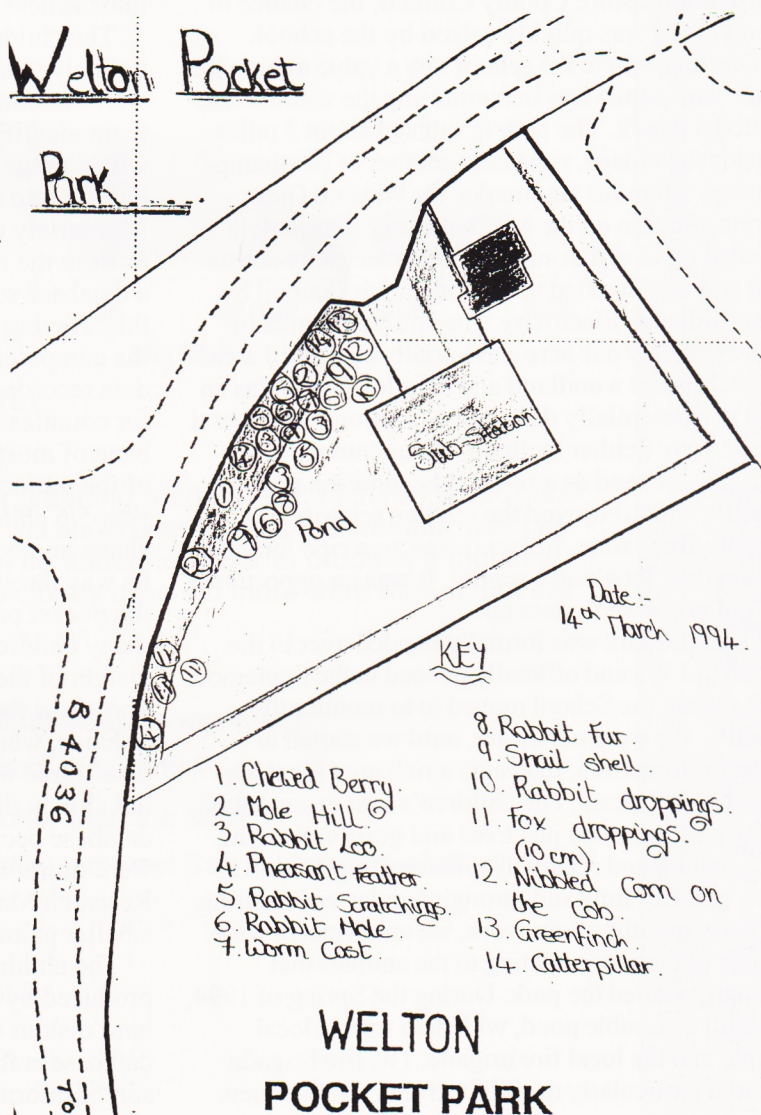 Welton Pocket
Park
Sub-Station
Pond
Date:-
14th March 1994.
KEY
1. Chewed Berry
2. Mole Hill
3. Rabbit Loo
4. Pheasant Feather
5. Rabbit Scratchings.
6. Rabbit Hole
7. Worm Cast
8. Rabbit Fur.
9. Snail shell
10. Rabbit droppings.
11 Fox droppings.
(10 cm)
12 Nibbled Corn on
the Cob.
13. Greenfinch.
14. Catterpillar.
B 4036
To
14
13
12
2
9
5
7
6
10
3
3
5
1
7
6
2
11
4
WELTON
POCKET PARK